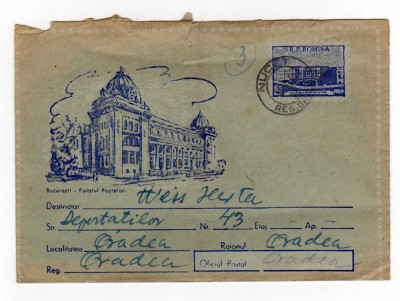 3
R.P. ROMINA
București - Palatul Poștelor.
Destinatar Weis Herta
Str. Deportatilor Nr. 43 Etaj Ap.
Localitatea Oradea Raionul Oradea
Reg. Oradea Oficiul Postal Oradea